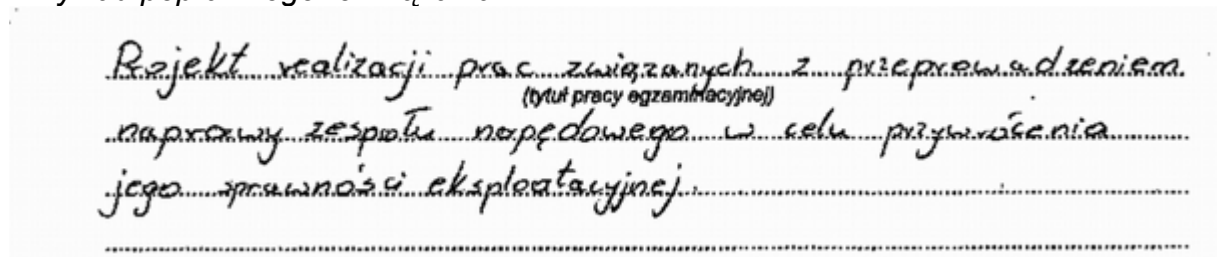 Projekt realizacji prac związanych z przeprowadzeniem
(tytuł pracy egzaminacyjnej)
naprawy zespołu napędowego w celu przywrócenia
jego sprawności eksploatacyjnej.